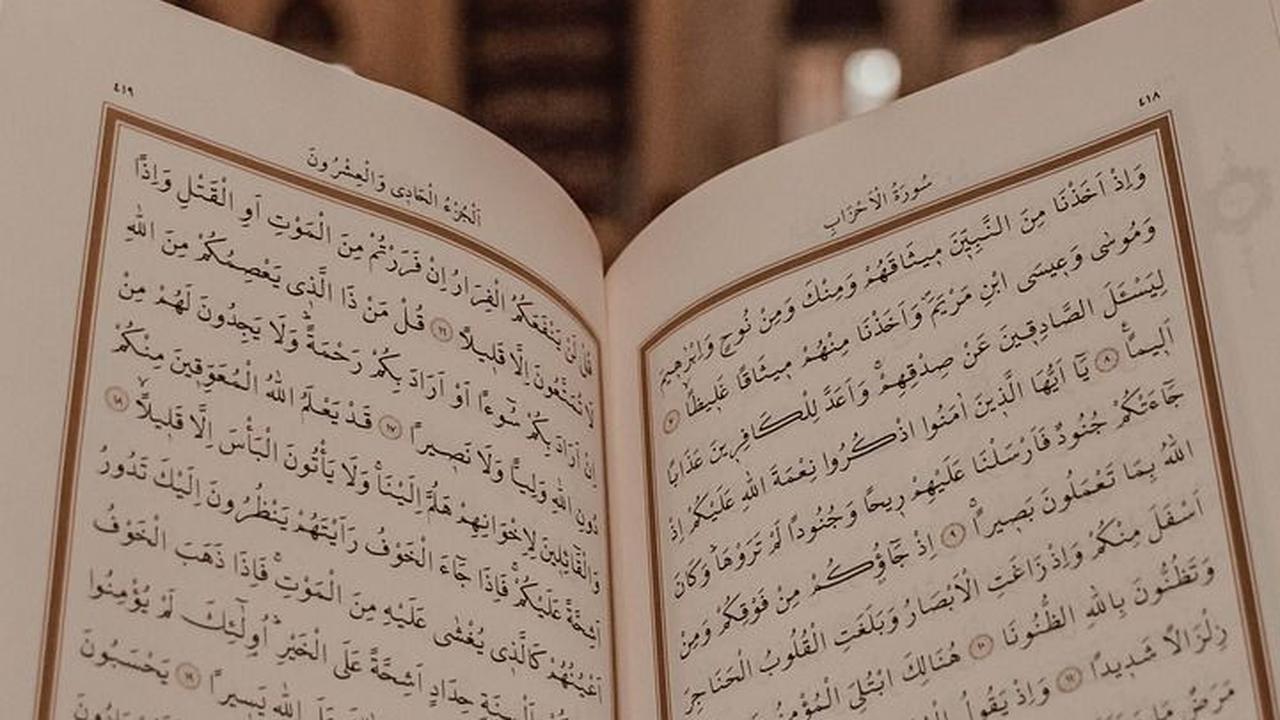 ٤١٨
سُورَةُ الْاَحْزَابِ
وَاِذْ اَخَذْنَا مِنَ النَّبِيّ۪نَ م۪يثَاقَهُمْ وَمِنْكَ وَمِنْ نُوحٍ وَاِبْرٰه۪يمَ
وَمُوسٰى وَع۪يسَى ابْنِ مَرْيَمَۖ وَاَخَذْنَا مِنْهُمْ م۪يثَاقًا غَل۪يظًاۙ ﴿٧﴾
لِيَسْـَٔلَ الصَّادِق۪ينَ عَنْ صِدْقِهِمْۚ وَاَعَدَّ لِلْكَافِر۪ينَ عَذَابًا
اَل۪يمًا۟ ﴿٨﴾ يَٓا اَيُّهَا الَّذ۪ينَ اٰمَنُوا اذْكُرُوا نِعْمَةَ اللّٰهِ عَلَيْكُمْ اِذْ
جَٓاءَتْكُمْ جُنُودٌ فَاَرْسَلْنَا عَلَيْهِمْ ر۪يحًا وَجُنُودًا لَمْ تَرَوْهَاۜ وَكَانَ
اللّٰهُ بِمَا تَعْمَلُونَ بَص۪يرًاۚ ﴿٩﴾ اِذْ جَٓاؤُ۫كُمْ مِنْ فَوْقِكُمْ وَمِنْ
اَسْفَلَ مِنْكُمْ وَاِذْ زَاغَتِ الْاَبْصَارُ وَبَلَغَتِ الْقُلُوبُ الْحَنَاجِرَ
وَتَظُنُّونَ بِاللّٰهِ الظُّنُونَا ﴿١٠﴾ هُنَالِكَ ابْتُلِيَ
زِلْزَالًا شَد۪يدًا ﴿١١﴾ وَاِذْ يَقُولُ
مَرَضٌ
٤١٩
اَلْجُزْءُ الْحَادِى وَالْعِشْرُونَ
قُلْ لَنْ يَنْفَعَكُمُ الْفِرَارُ اِنْ فَرَرْتُمْ مِنَ الْمَوْتِ اَوِ الْقَتْلِ وَاِذًا
لَا تُمَتَّعُونَ اِلَّا قَل۪يلًا ﴿١٦﴾ قُلْ مَنْ ذَا الَّذ۪ى يَعْصِمُكُمْ مِنَ اللّٰهِ
اِنْ اَرَادَ بِكُمْ سُٓوءًا اَوْ اَرَادَ بِكُمْ رَحْمَةًۜ وَلَا يَجِدُونَ لَهُمْ مِنْ
دُونِ اللّٰهِ وَلِيًّا وَلَا نَص۪يرًا ﴿١٧﴾ قَدْ يَعْلَمُ اللّٰهُ الْمُعَوِّق۪ينَ مِنْكُمْ
وَالْقَٓائِل۪ينَ لِاِخْوَانِهِمْ هَلُمَّ اِلَيْنَاۚ وَلَا يَأْتُونَ الْبَأْسَ اِلَّا قَل۪يلًاۙ ﴿١٨﴾
اَشِحَّةً عَلَيْكُمْۚ فَاِذَا جَٓاءَ الْخَوْفُ رَاَيْتَهُمْ يَنْظُرُونَ اِلَيْكَ تَدُورُ
اَعْيُنُهُمْ كَالَّذ۪ى يُغْشٰى عَلَيْهِ مِنَ الْمَوْتِۚ فَاِذَا ذَهَبَ الْخَوْفُ
بِاَلْسِنَةٍ حِدَادٍ اَشِحَّةً عَلَى الْخَيْرِۜ اُو۬لٰٓئِكَ لَمْ يُؤْمِنُوا
اللّٰهِ يَس۪يرًا ﴿١٩﴾ يَحْسَبُونَ